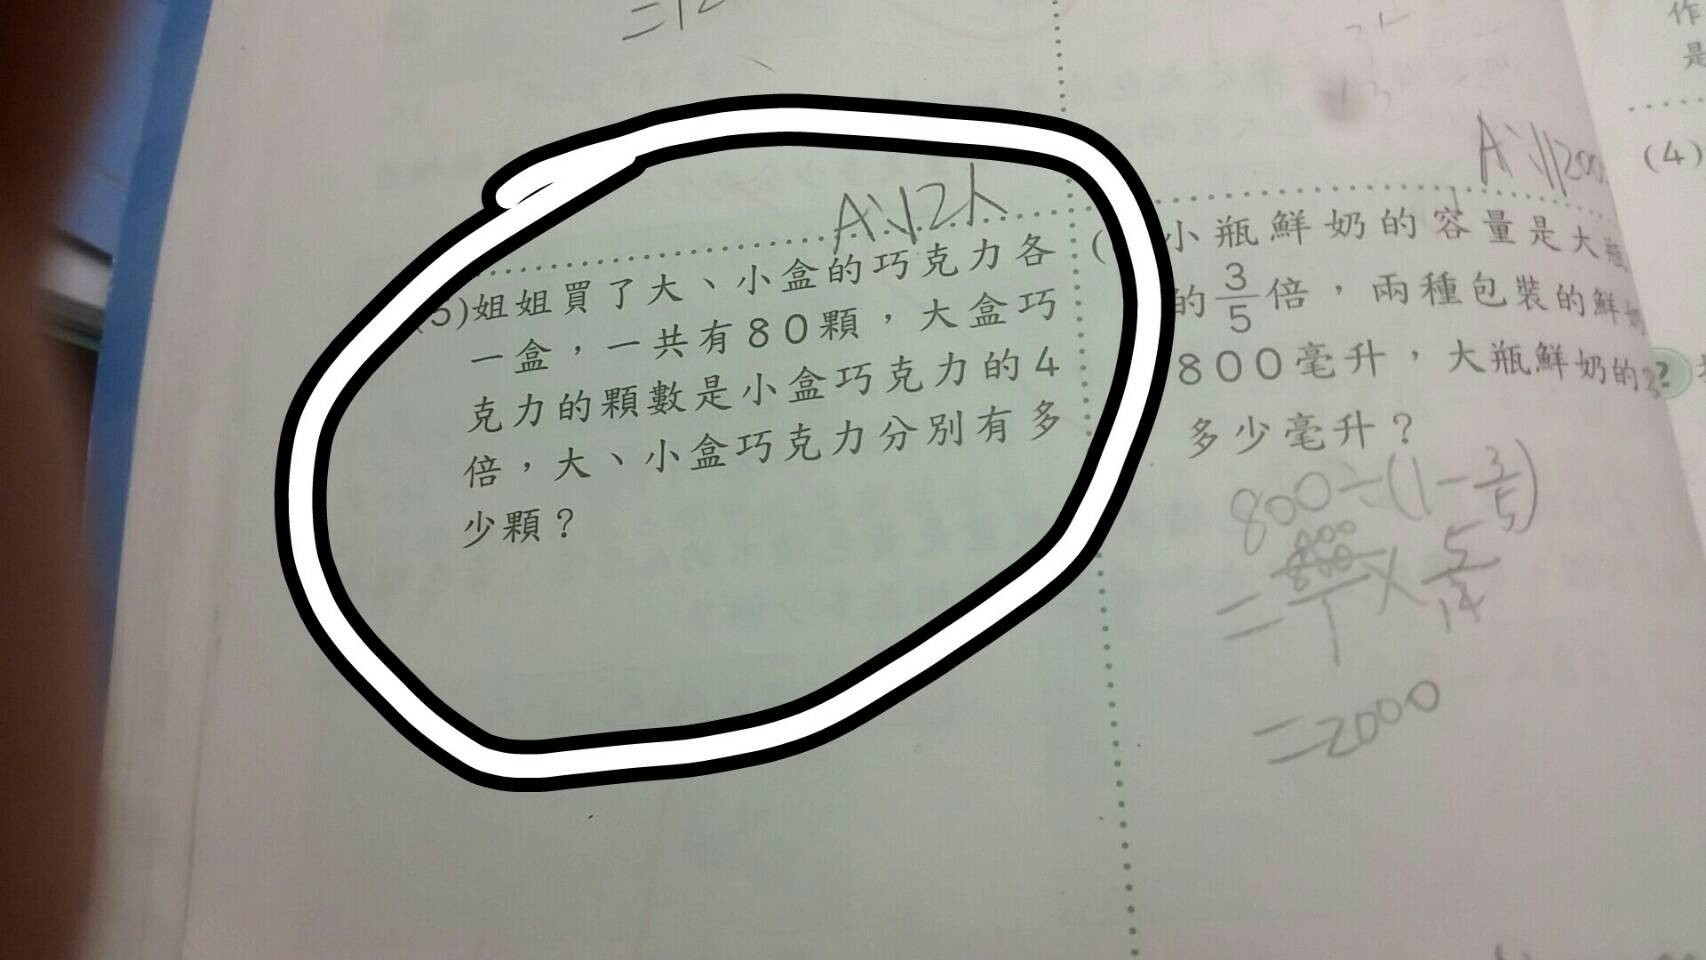 =12
A:12人
(5)姐姐買了大、小盒的巧克力各
一盒，一共有80顆，大盒巧
克力的顆數是小盒巧克力的4
倍，大、小盒巧克力分別有多
少顆？
小瓶鮮奶的容量是大瓶
的3/5倍，兩種包裝的鮮奶
800毫升，大瓶鮮奶的
多少毫升？
800÷(1-3/5)
=2000
(4)
作
是